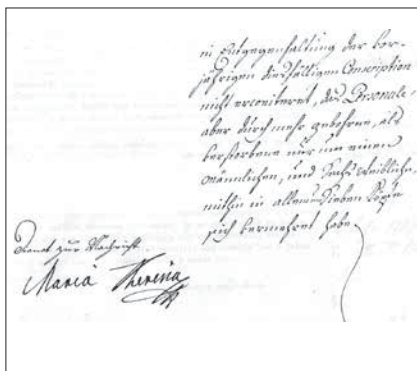 in Entgegenhaltung der vor-
jährigen diesfälligen Conscription
nicht erweiteret, das Personale
aber durch mehr gebohrne, als
verstorbene nur um einen
männlichen, und Sechs weibliche,
mithin in allem Sieben Köpfe
sich vermehret habe.
dienet zur Nachricht.
Maria Theresia